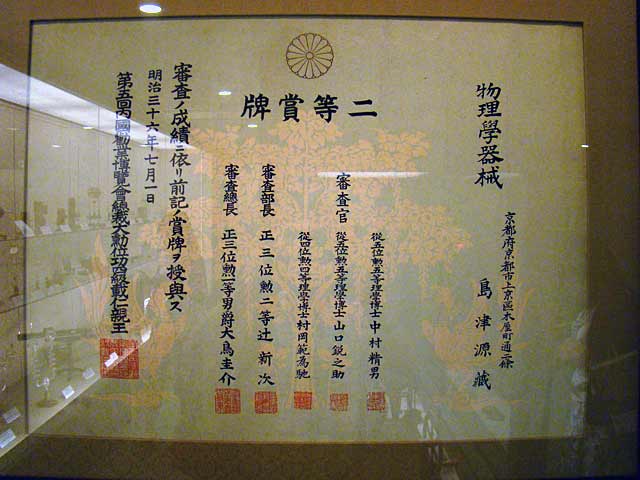 物理學器械
京都府京都市上京區木屋町通二條
島津源藏
二等賞牌
審査官
從五位勲五等理學博士中村精男
從五位勲五等理學博士山口鋭之助
從四位勲四等理學博士村岡範為馳
審査部長 正三位勲二等辻新次
審査總長 正三位勲一等男爵大鳥圭介
審査ノ成績ニ依リ前記ノ賞牌ヲ授與ス
明治三十六年七月一日
第五回內國勸業博覽會總裁大勲位功四級載仁親王